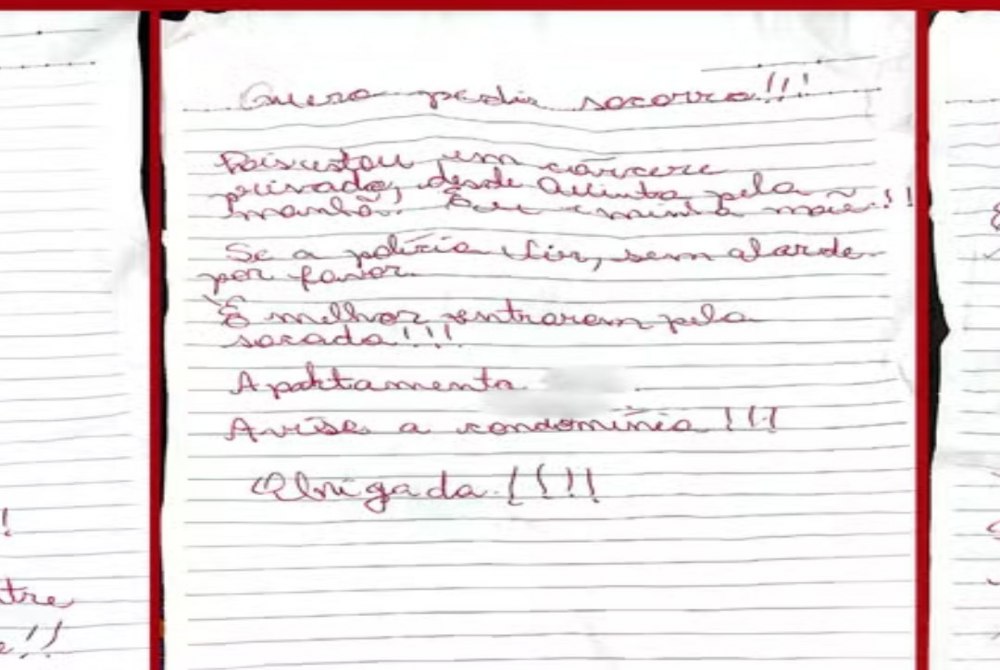 Quero pedir socorro!!!
Pois estou em cárcere
privado, desde Quinta pela
manhã! Eu e minha mãe!!
Se a polícia vir, sem alarde
por favor.
É melhor entrarem pela
sacada!!!
Apartamento
Avise a condominio !!!
Obrigada!!!!
!
tre
e!!